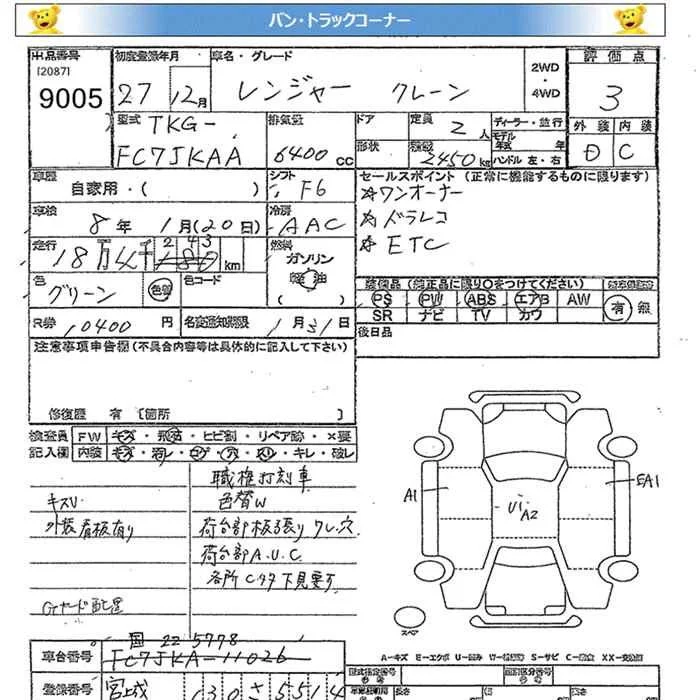 バン・トラックコーナー
出品番号 初度登録年月 車名・グレード 評価点
[2087]
9005
27 12月 レンジャー クレーン 2WD・4WD 3
型式 排気量 ドア 定員 2人 ディーラー・並行 外装 内装
TKG-
FC7JKAA 6400cc 形状 積載 2450kg モデル年式 年 ハンドル 左・右 D C
車歴 自家用・( ) シフト F6 セールスポイント(正常に機能するものに限ります)
☆ワンオーナー
☆ドラレコ
☆ETC
車検 8年 1月(20日) 冷房 AAC
走行 18万4千243 km 燃料 ガソリン 軽油 ( )
色 グリーン 色替 色コード
装備品(純正品に限り○をつけてください)
PS PW ABS エアB AW 有 無
SR ナビ TV カワ
R券 10400円 名変通知期限 1月31日 後日品
注意事項申告欄(不具合内容等は具体的に記入して下さい)
修復歴 有 [箇所 ]
検査員 FW キズ・飛石・ヒビ割・リペア跡・×要
記入欄 内装 キズ・汚レ・コゲ・穴・スリ・キレ・破レ
職権打刻車
キズU 色替W
外装看板有り 荷台部板張りワレ・穴
荷台部A.U.C
各所Cサタ下見要す
Gヤード配置
A1 U1 A2 EA1
スペア
A-キズ E-エクボ U-凹み W-補修跡 S-サビ C-腐食 XX-交換済
国 22 5778
車台番号 FC7JKA-11026
登録番号 宮城 130 さ 5514
型式指定番号 類別区分番号
長さ